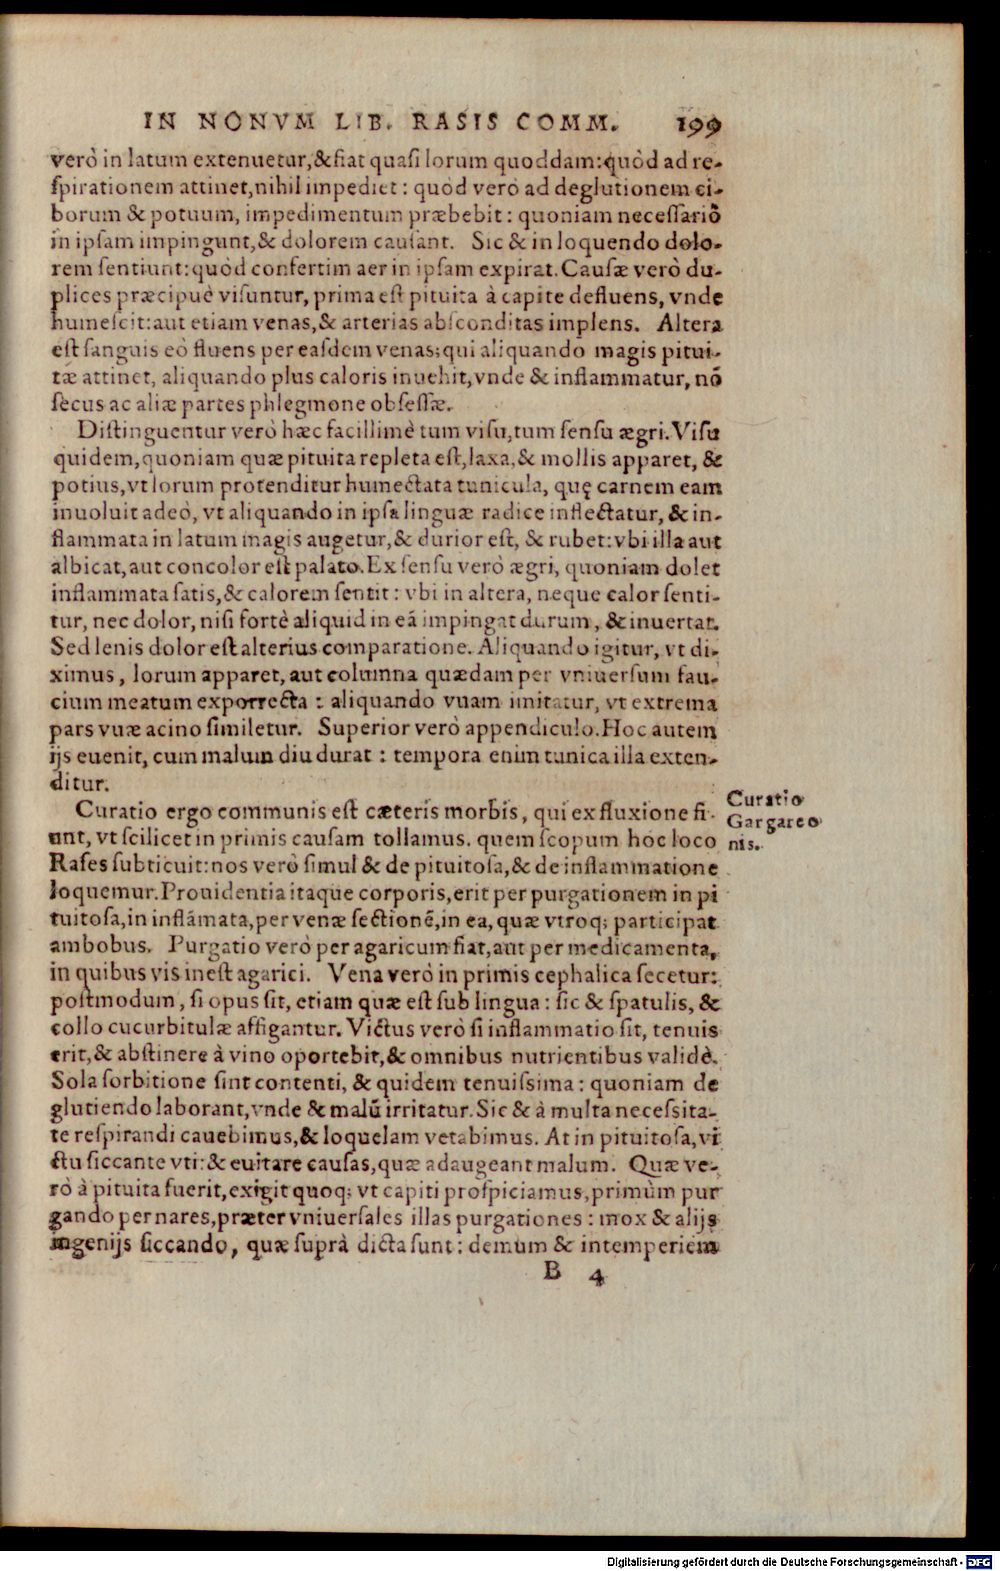 IN NONVM LIB. RASIS COMM. 199
verò in latum extenuetur,&fiat quasi lorum quoddam:quòd ad re-
spirationem attinet,nihil impediet : quòd verò ad deglutionem ci-
borum & potuum, impedimentum præbebit : quoniam necessariò
in ipsam impingunt,& dolorem causant. Sic & in loquendo dolo-
rem sentiunt:quòd confertim aer in ipsam expirat. Causæ verò du-
plices præcipuè visuntur, prima est pituita à capite defluens, vnde
humescit:aut etiam venas,& arterias absconditas implens. Altera
est sanguis eò fluens per easdem venas;qui aliquando magis pitui-
tæ attinet, aliquando plus caloris inuehit,vnde & inflammatur, nõ
secus ac aliæ partes phlegmone obsessæ.
Distinguentur verò hæc facillimè tum visu,tum sensu ægri. Visu
quidem,quoniam quæ pituita repleta est,laxa,& mollis apparet, &
potius,vt lorum protenditur humectata tunicula, quę carnem eam
inuoluit adeò, vt aliquando in ipsa linguæ radice inflectatur, & in-
flammata in latum magis augetur,& durior est, & rubet:vbi illa aut
albicat,aut concolor est palato.Ex sensu verò ægri, quoniam dolet
inflammata satis,& calorem sentit : vbi in altera, neque calor senti-
tur, nec dolor, nisi fortè aliquid in eã impingat durum, & inuertat.
Sed lenis dolor est alterius comparatione. Aliquando igitur, vt di-
ximus, lorum apparet, aut columna quædam per vniuersum fau-
cium meatum exporrecta : aliquando vuam imitatur, vt extrema
pars vuæ acino similetur. Superior verò appendiculo.Hoc autem
ijs euenit, cum malum diu durat : tempora enim tunica illa exten-
ditur.
Curatio ergo communis est cæteris morbis, qui ex fluxione fi-
unt, vt scilicet in primis causam tollamus. quem scopum hoc loco
Rases subticuit:nos verò simul & de pituitosa,& de inflammatione
loquemur.Prouidentia itaque corporis,erit per purgationem in pi
tuitosa,in inflãmata,per venæ sectionẽ,in ea, quæ vtroq; participat
ambobus. Purgatio verò per agaricum fiat,aut per medicamenta,
in quibus vis inest agarici. Vena verò in primis cephalica secetur:
postmodum, si opus sit, etiam quæ est sub lingua : sic & spatulis, &
collo cucurbitulæ affigantur. Victus verò si inflammatio sit, tenuis
erit,& abstinere à vino oportebit,& omnibus nutrientibus validè.
Sola sorbitione sint contenti, & quidem tenuissima : quoniam de
glutiendo laborant,vnde & malũ irritatur. Sic & à multa necessita-
te respirandi cauebimus,& loquelam vetabimus. At in pituitosa,vi
ctu siccante vti:& euitare causas,quæ adaugeant malum. Quæ ve-
rò à pituita fuerit,exigit quoq; vt capiti prospiciamus,primùm pur
gando per nares,præter vniuersales illas purgationes : mox & alijs
ingenijs siccando, quæ suprà dicta sunt : demum & intemperiem
B 4
Curatio
Gargareo
nis.
Digitalisierung gefördert durch die Deutsche Forschungsgemeinschaft - DFG